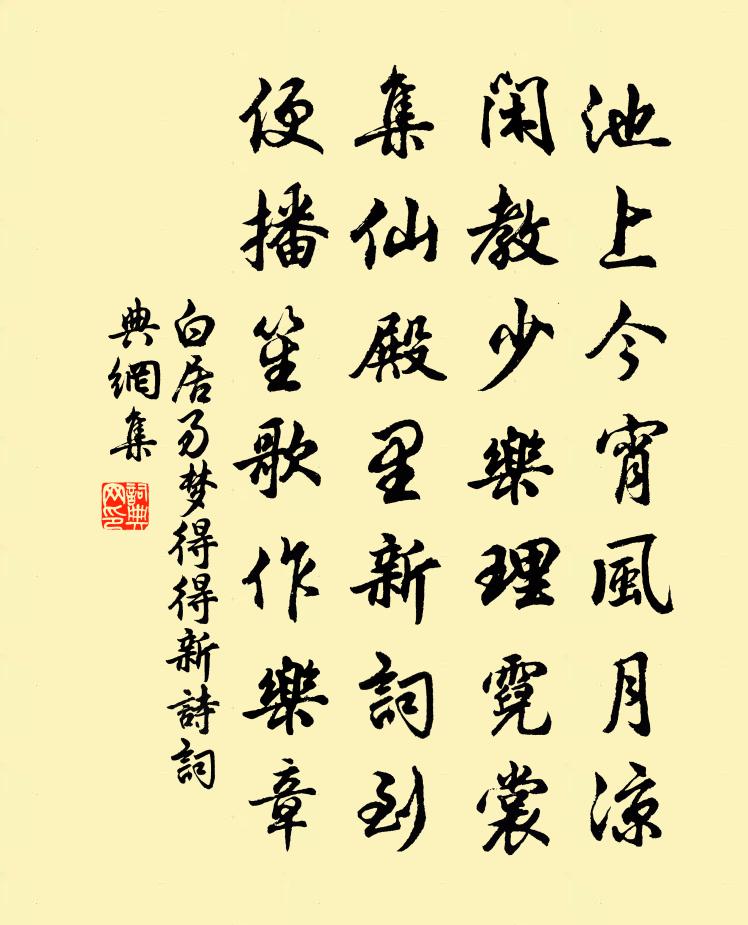 池上今宵風月涼
閑教少樂理霓裳
集仙殿里新詞到
便播笙歌作樂章
白居易梦得得新詩詞
典網集
詞典
网印